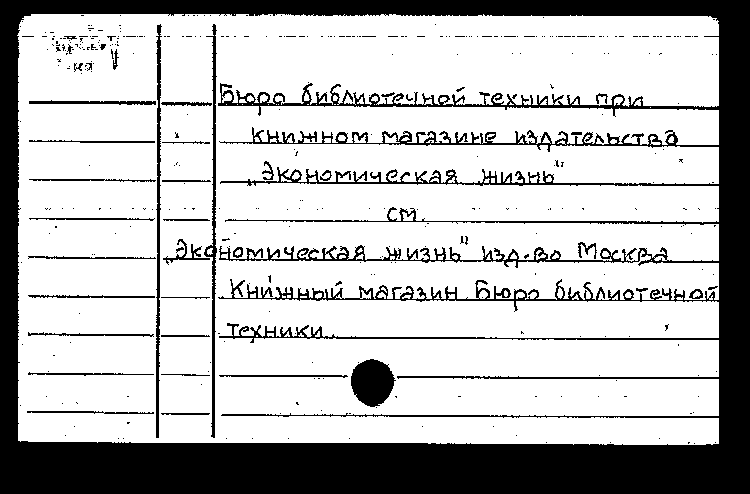 Бюро библиотечной техники при
книжном магазине издательства
„Экономическая жизнь"
см.
„Экономическая жизнь" изд-во Москва
Книжный магазин. Бюро библиотечной
техники.